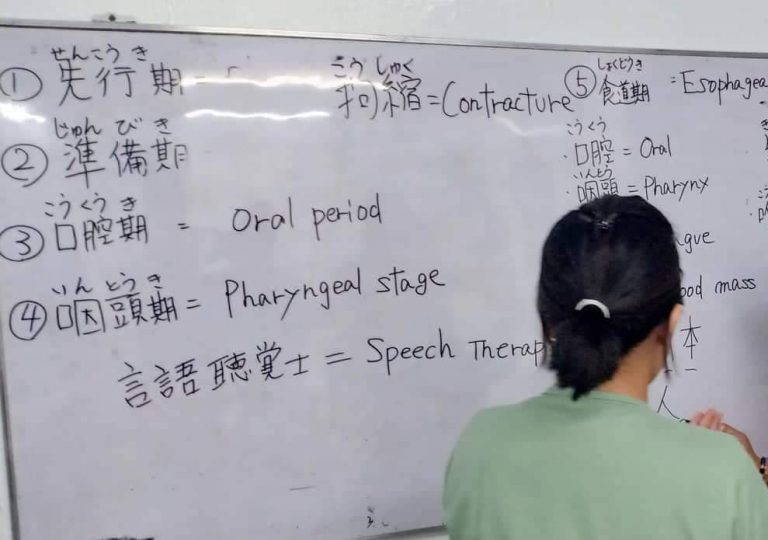 せんこうき
① 先行期 =
じゅんびき
② 準備期
こうくうき
③ 口腔期 = Oral period
いんとうき
④ 咽頭期 = Pharyngeal stage
言語聴覚士 = Speech Therap
こうしゅく
拘縮 = Contracture
しょくどうき
⑤ 食道期 = Esophagea
こうくう
・口腔 = Oral
いんとう
・咽頭 = Pharynx
gue
ood mass
本
人